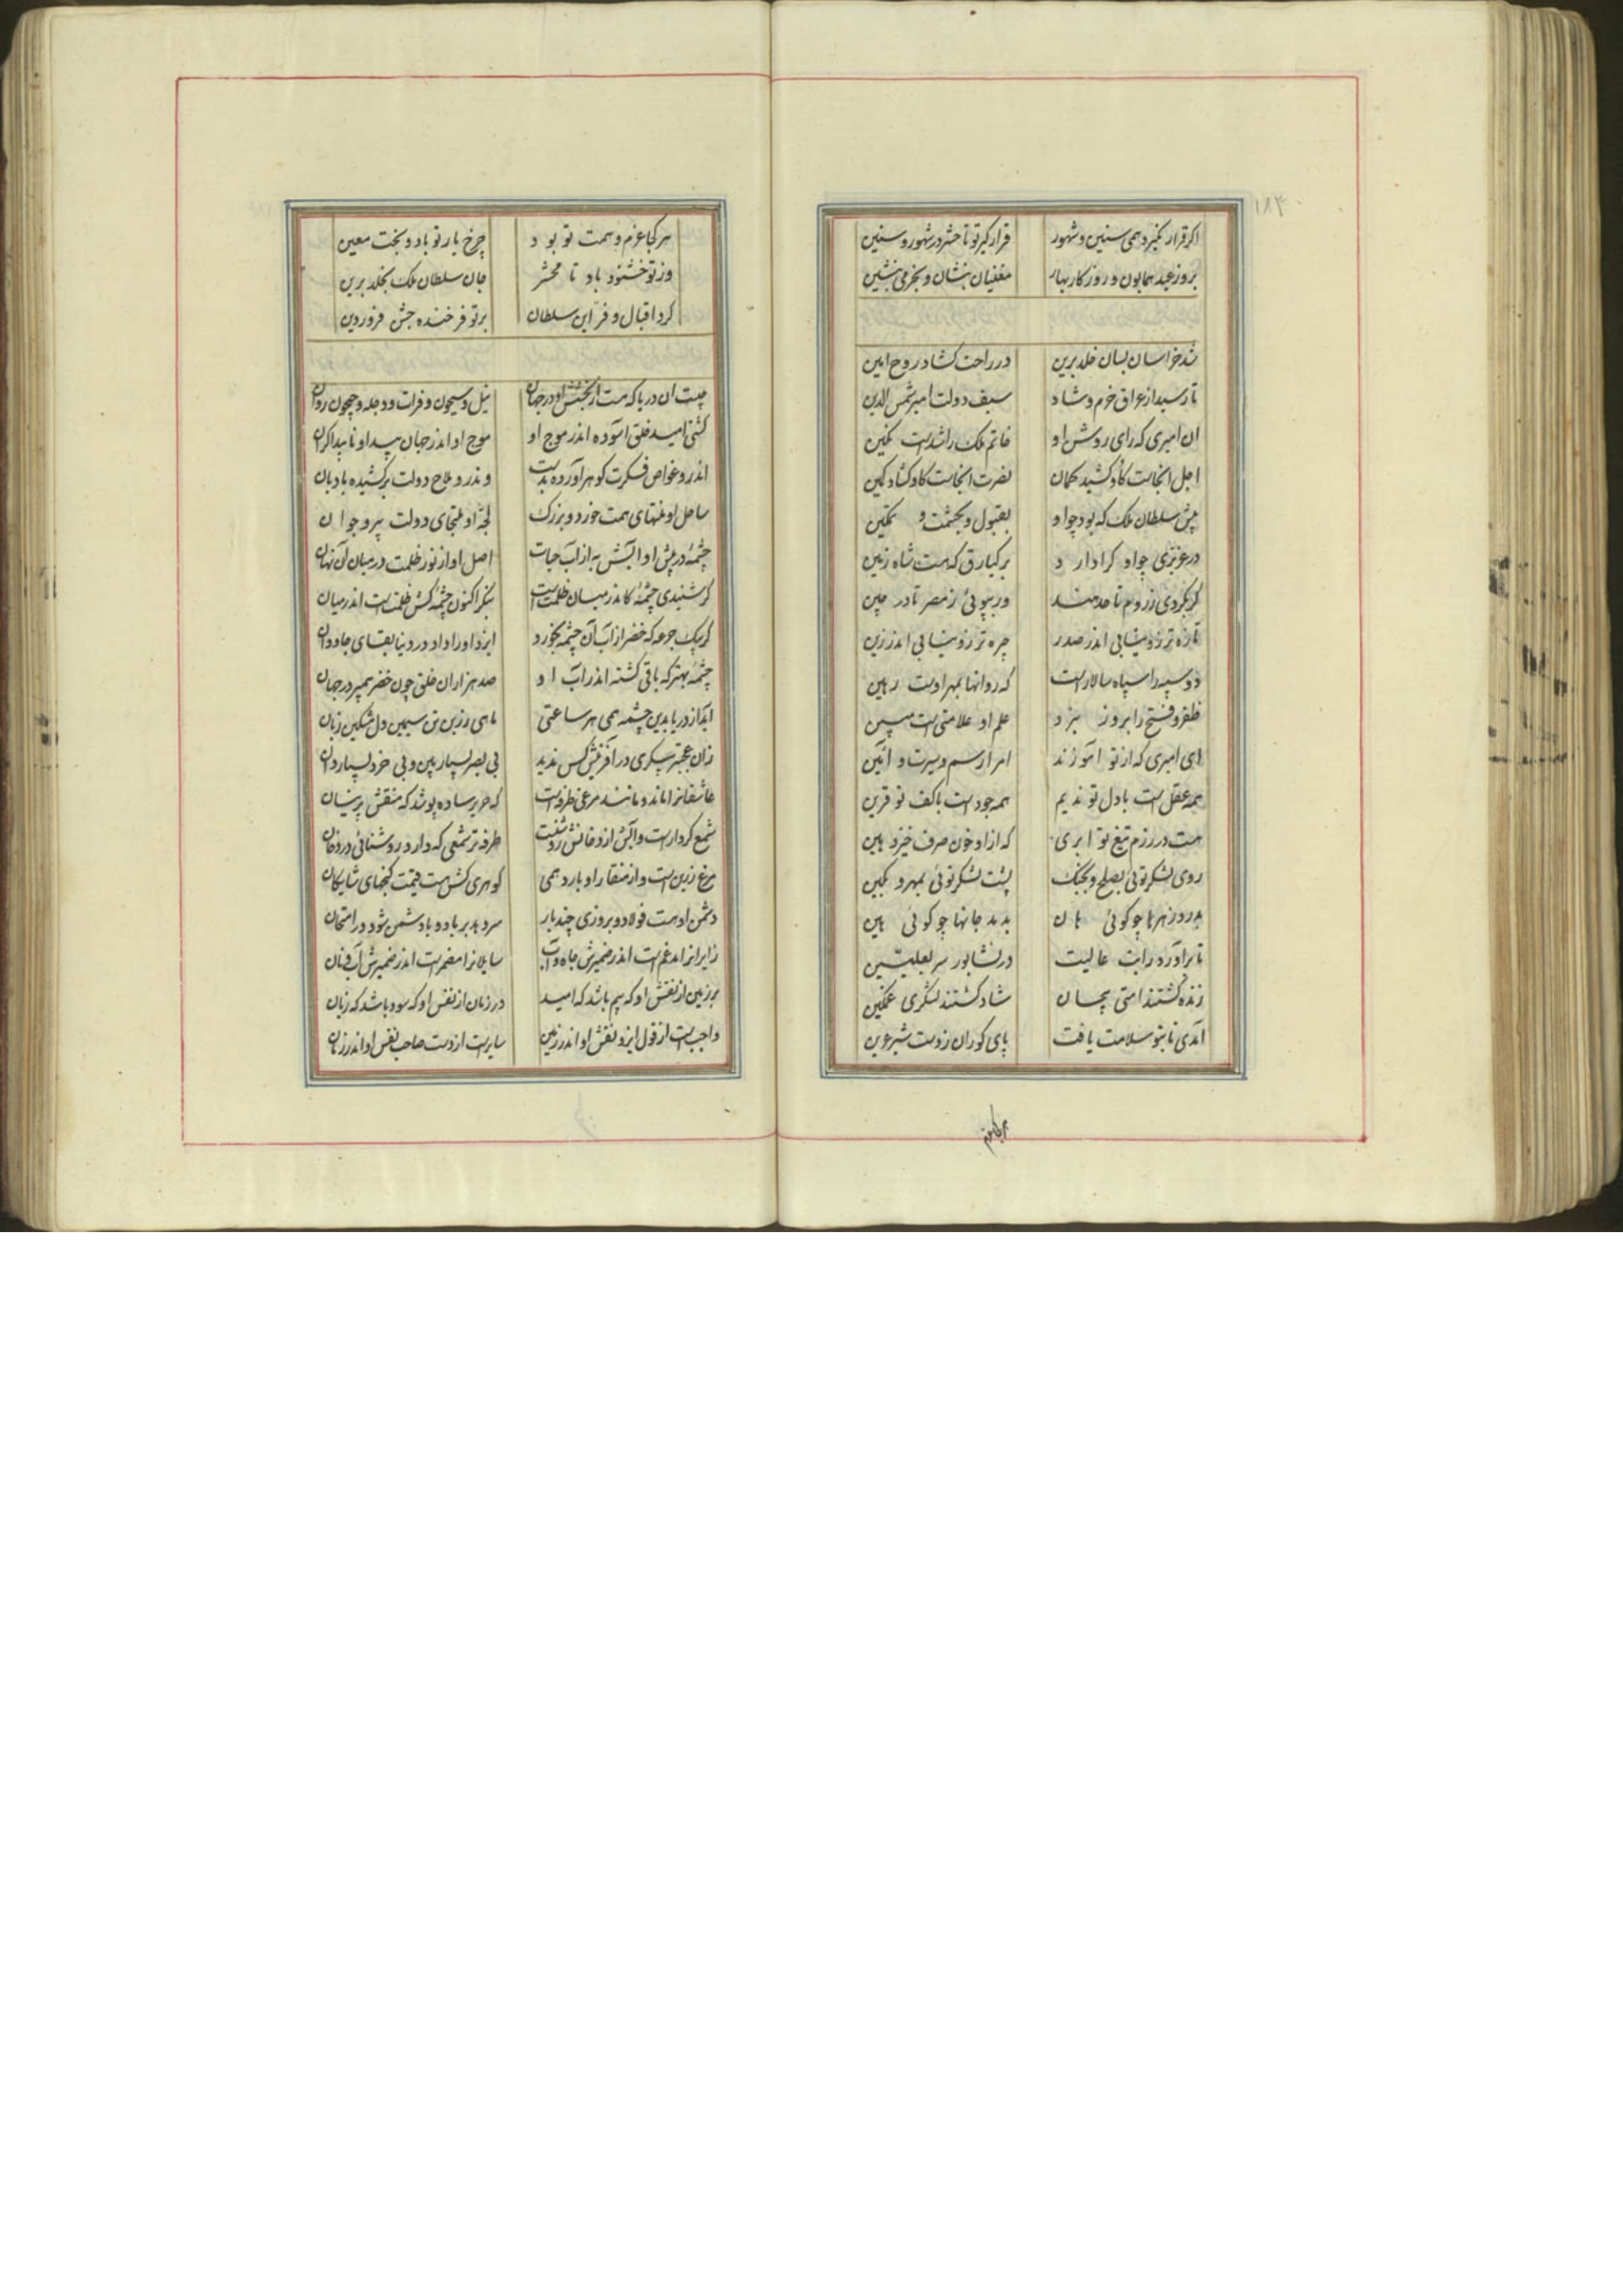 اکر قرار نکیرد همی سنین و شهور قرار کیر تو تا حشر در شهور و سنین
بروز عید همایون و روزکار بهار مغنیان بنشان و بخرمی بنشین
شد خراسان بسان خلد برین در راحت کشاد روح امین
تا رسید از عراق خرم و شاد سیف دولت امیر شمس الدین
ان امیری که رای روشن او خاتم ملک را شدست نکین
اجل انجاست کاو کشید کمان نصرت انجاست کاو کشاد کمین
پیش سلطان ملک که بود چو او بقبول و بحشمت و تمکین
در عزیزی چو او کرا دارد برکیارق که هست شاه زمین
کر بکردی ز روم تا حد هند ور بپوئی ز مصر تا در چین
تازه تر زو نیابی اندر صدر چره تر زو نیابی اندر زین
دو سپه را سپاه سالارست که روانها بمهر اوست رهین
ظفر و فتح را بروز نبرد علم او علامتی است مبین
ای امیری که از تو اموزند امرا رسم و سیرت و آئین
همه عقل است با دل تو ندیم همه جود است با کف تو قرین
هست در رزم تیغ تو ابری که از او خون صرف خیزد هین
روی لشکر توئی بصلح و بجنک پشت لشکر توئی بمهر و بکین
بدرد زهرها چو کوئی هان بدمد جانها چو کوئی هین
تا براورد رایت عالیت در نشابور سر بعلیین
زنده کشتند امتی بیجان شاد کشتند لشکری غمکین
آمدی تا بتو سلامت یافت پای کوران ز دست شیر عرین
هر کجا عزم
هر کجا عزم و همت تو بود چرخ یار تو باد و بخت معین
وز تو خشنود باد تا محشر جان سلطان ملک بخلد برین
کرد اقبال و فر این سلطان بر تو فرخنده جشن فروردین
چیست ان دریا که هست از بخشش او در جهان نیل و سیحون و فرات و دجله و جیحون روان
کشتی امید خلق اسوده اندر موج او موج او اندر جهان پیدا و ناپیدا کران
اندرو غواص فکرت کوهر آورده بدست وندرو ملاح دولت برکشیده بادبان
ساحل او منتهای همت خورد و بزرک لجه او ملتجای دولت پیر و جوان
چشمهٔ در پیش او و آبش به از آب حیات اصل او از نور و ظلمت در میان آن نهان
کر شنیدی چشمهٔ کاندر میان ظلمت است بنکر اکنون چشمهٔ کش ظلمت است اندر میان
کر بیک جرعه که خضر از آب آن چشمه بخورد ایزد او را داد در دنیا بقای جاودان
چشمهٔ بهتر که باقی کشته اندر آب او صد هزاران خلق چون خضر پیمبر در جهان
آید از دریا بدین چشمه همی هر ساعتی ماهی زرین تن سیمین دل مشکین زبان
زان عجبتر پیکری در آفرینش کس ندید بی بصر بسیار بین و بی خرد بسیار دان
عاشقانرا ماند و مانند مرغی طرفه است که حریر ساده پوشد که منقش پرنیان
شمع کردار است و آبش از دخانش روشنست طرفه تر شمعی که دارد روشنائی در دخان
مرغ زرین است و از منقار او بارد همی کوهری کش هست قیمت کنجهای شایکان
دشمن اوست فولاد و بروزی چند بار سر دهد بر باد و با دشمن شود در امتحان
زایرانرا مدغم است اندر ضمیرش جاه و آب سایلانرا مضمر است اندر ضمیرش آب و نان
بر زمین از نقش او که بیم باشد که امید در زمان از نفس او که سود باشد که زیان
واجب است از قول ایزد نقش او اندر زمین سایر است از دست صاحب نفس او اندر زمان